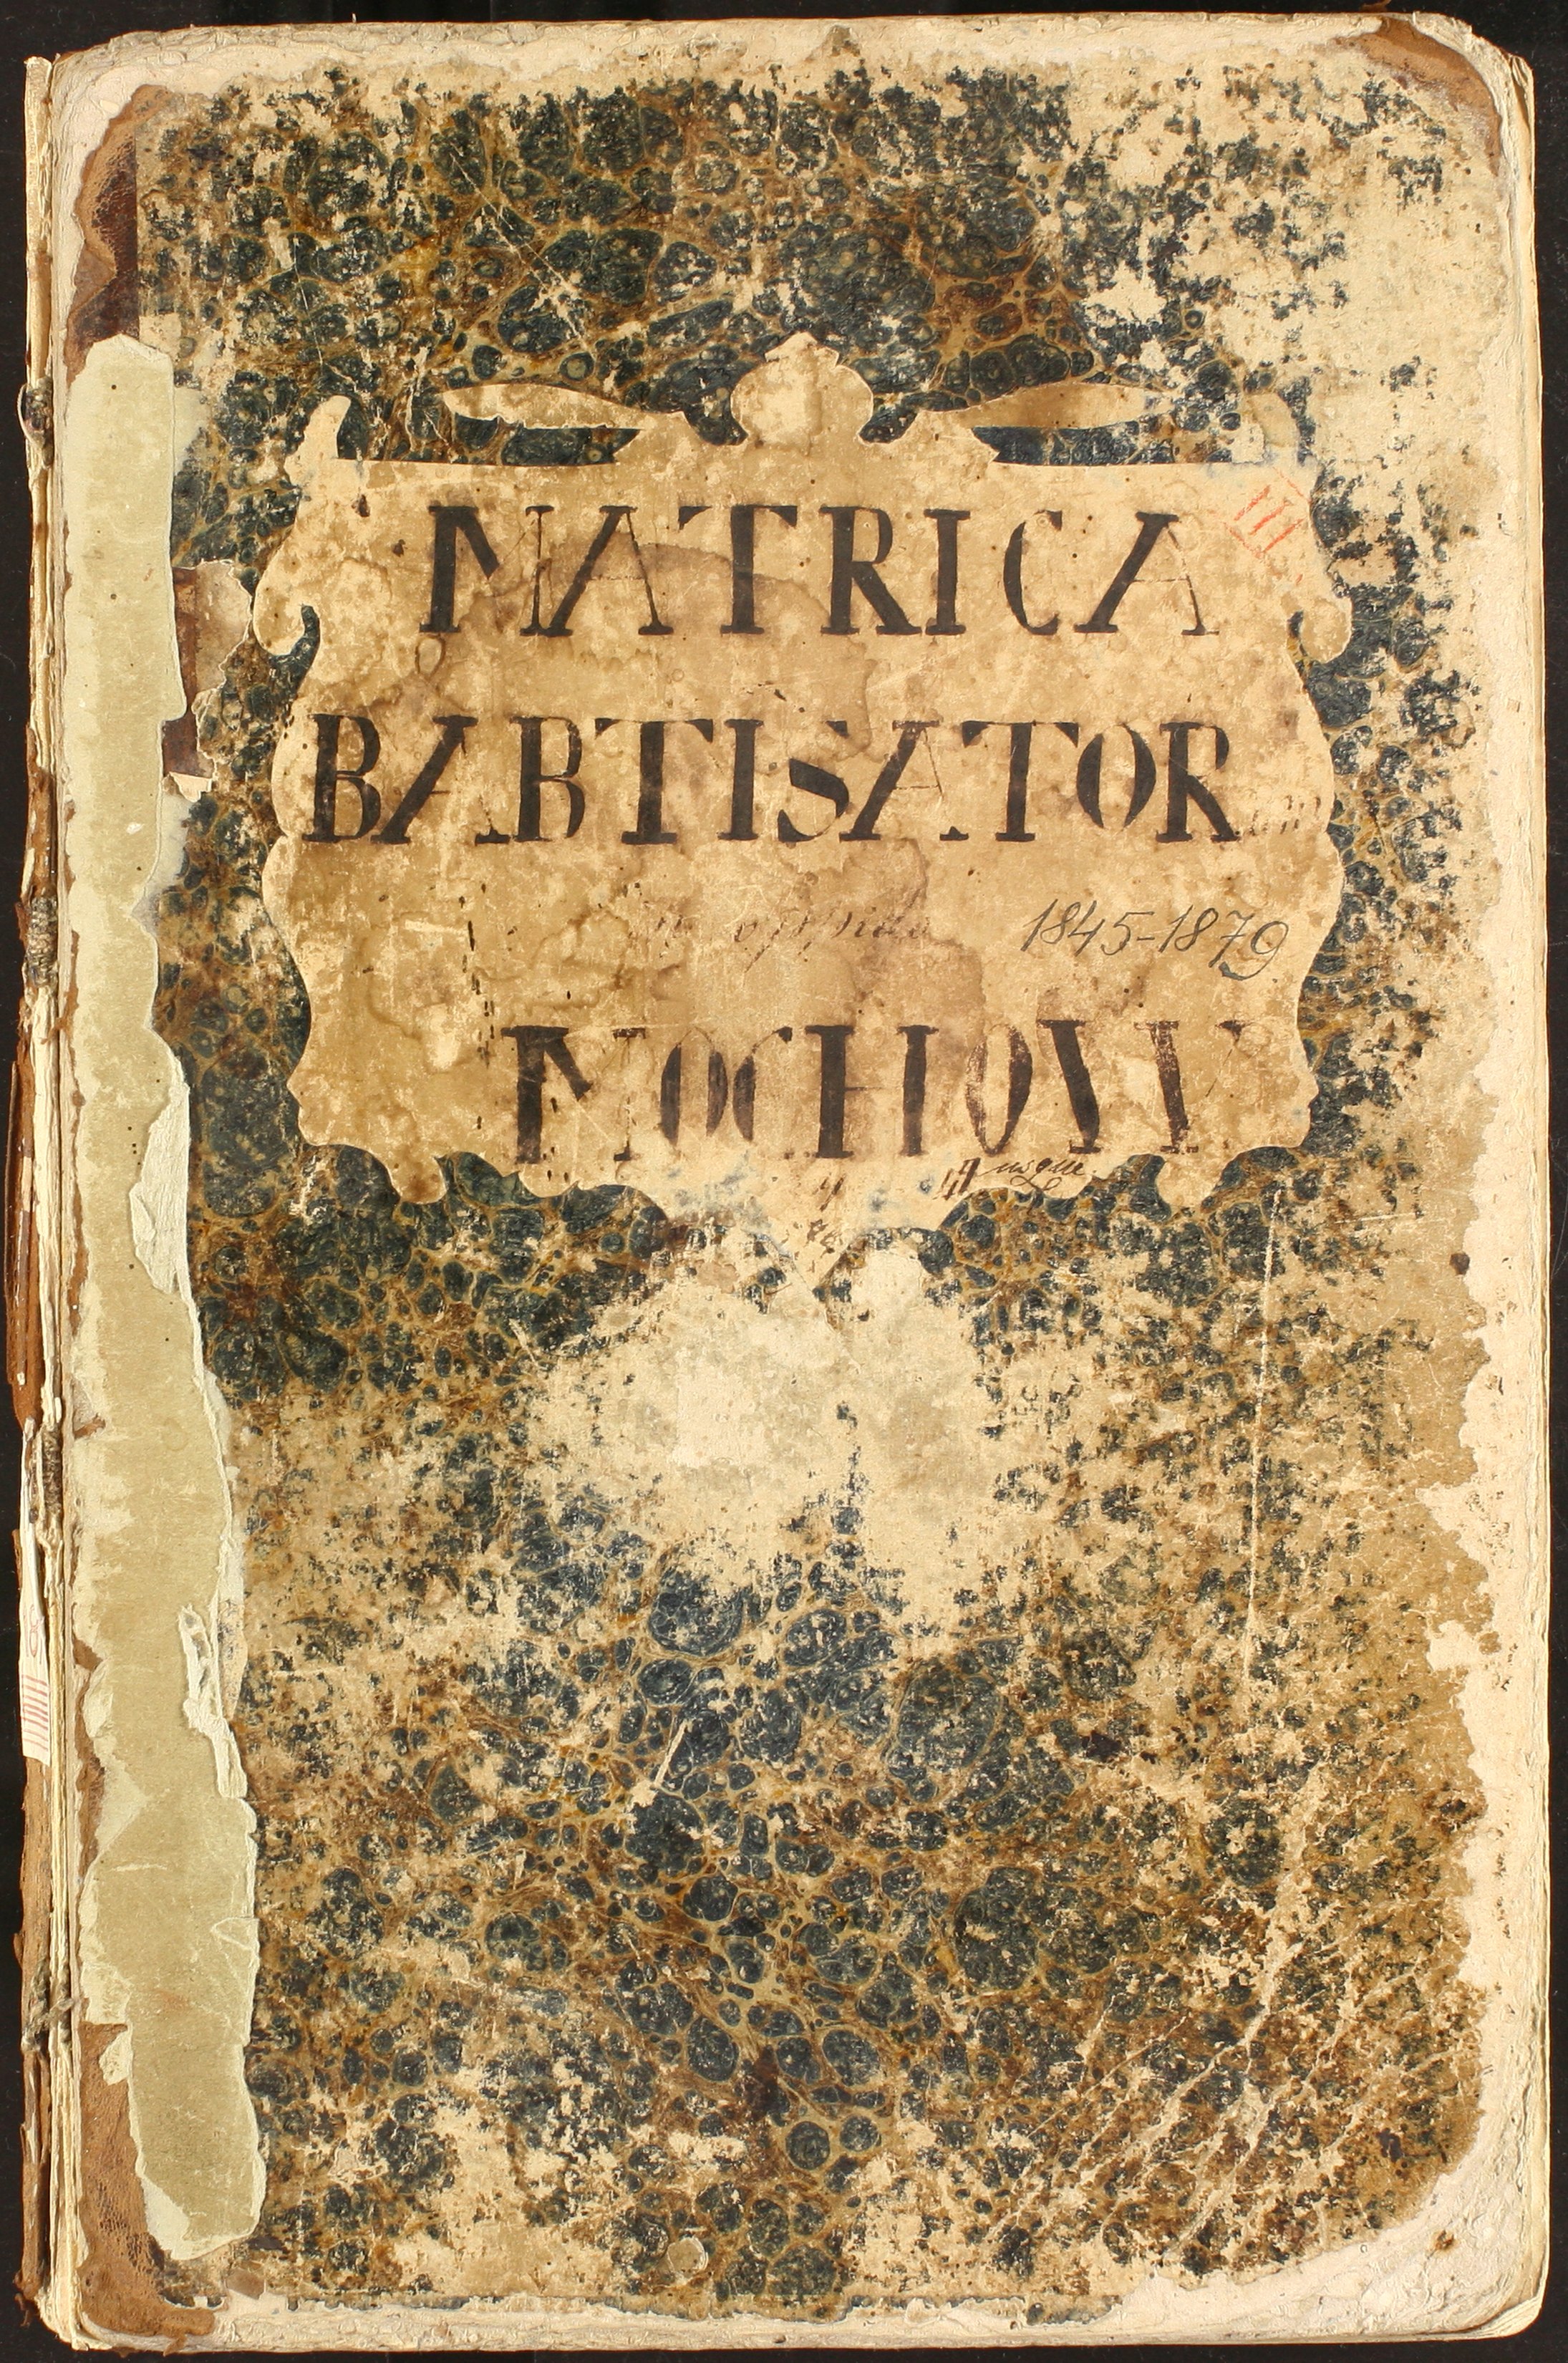 III
MATRICA
BABTISATOR
in oppido
1845-1879
MOCHOW
usque